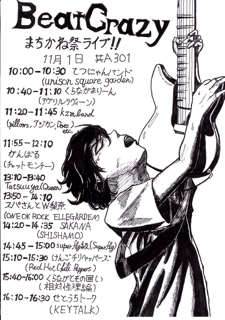 BeatCrazy
まちかね祭ライブ!!
11月1日 共A301
10:00-10:30 てつにゃんバンド
(unison square garden)
10:40-11:10 くらなかまりーん
(アヴリルラヴィーン)
11:20-11:45 kzmband
(pillows, アジカン, Does)
etc
11:55-12:10
かんばる
(チャットモンチー)
13:10-13:40
Tatsuuya(Queen)
13:50-14:10
スパさんとW梨奈
(ONE OK ROCK ELLEGARDEN)
14:20-14:35 SAKANA
(SHISHAMO)
14:45-15:00 (Superfly)
15:10-15:30 けんごチリペッパーズ
(Red Hot Chili Peppers)
15:40-16:00 くらながとその囲い
(相対性理論)
16:10-16:30 せとうちトーク
(KEYTALK)